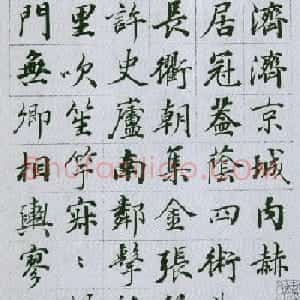 濟濟京城內赫
居冠蓋蔭四術
長衢朝集金張
許史廬南鄰擊
里吹笙竽寂:
門無卿相輿寥